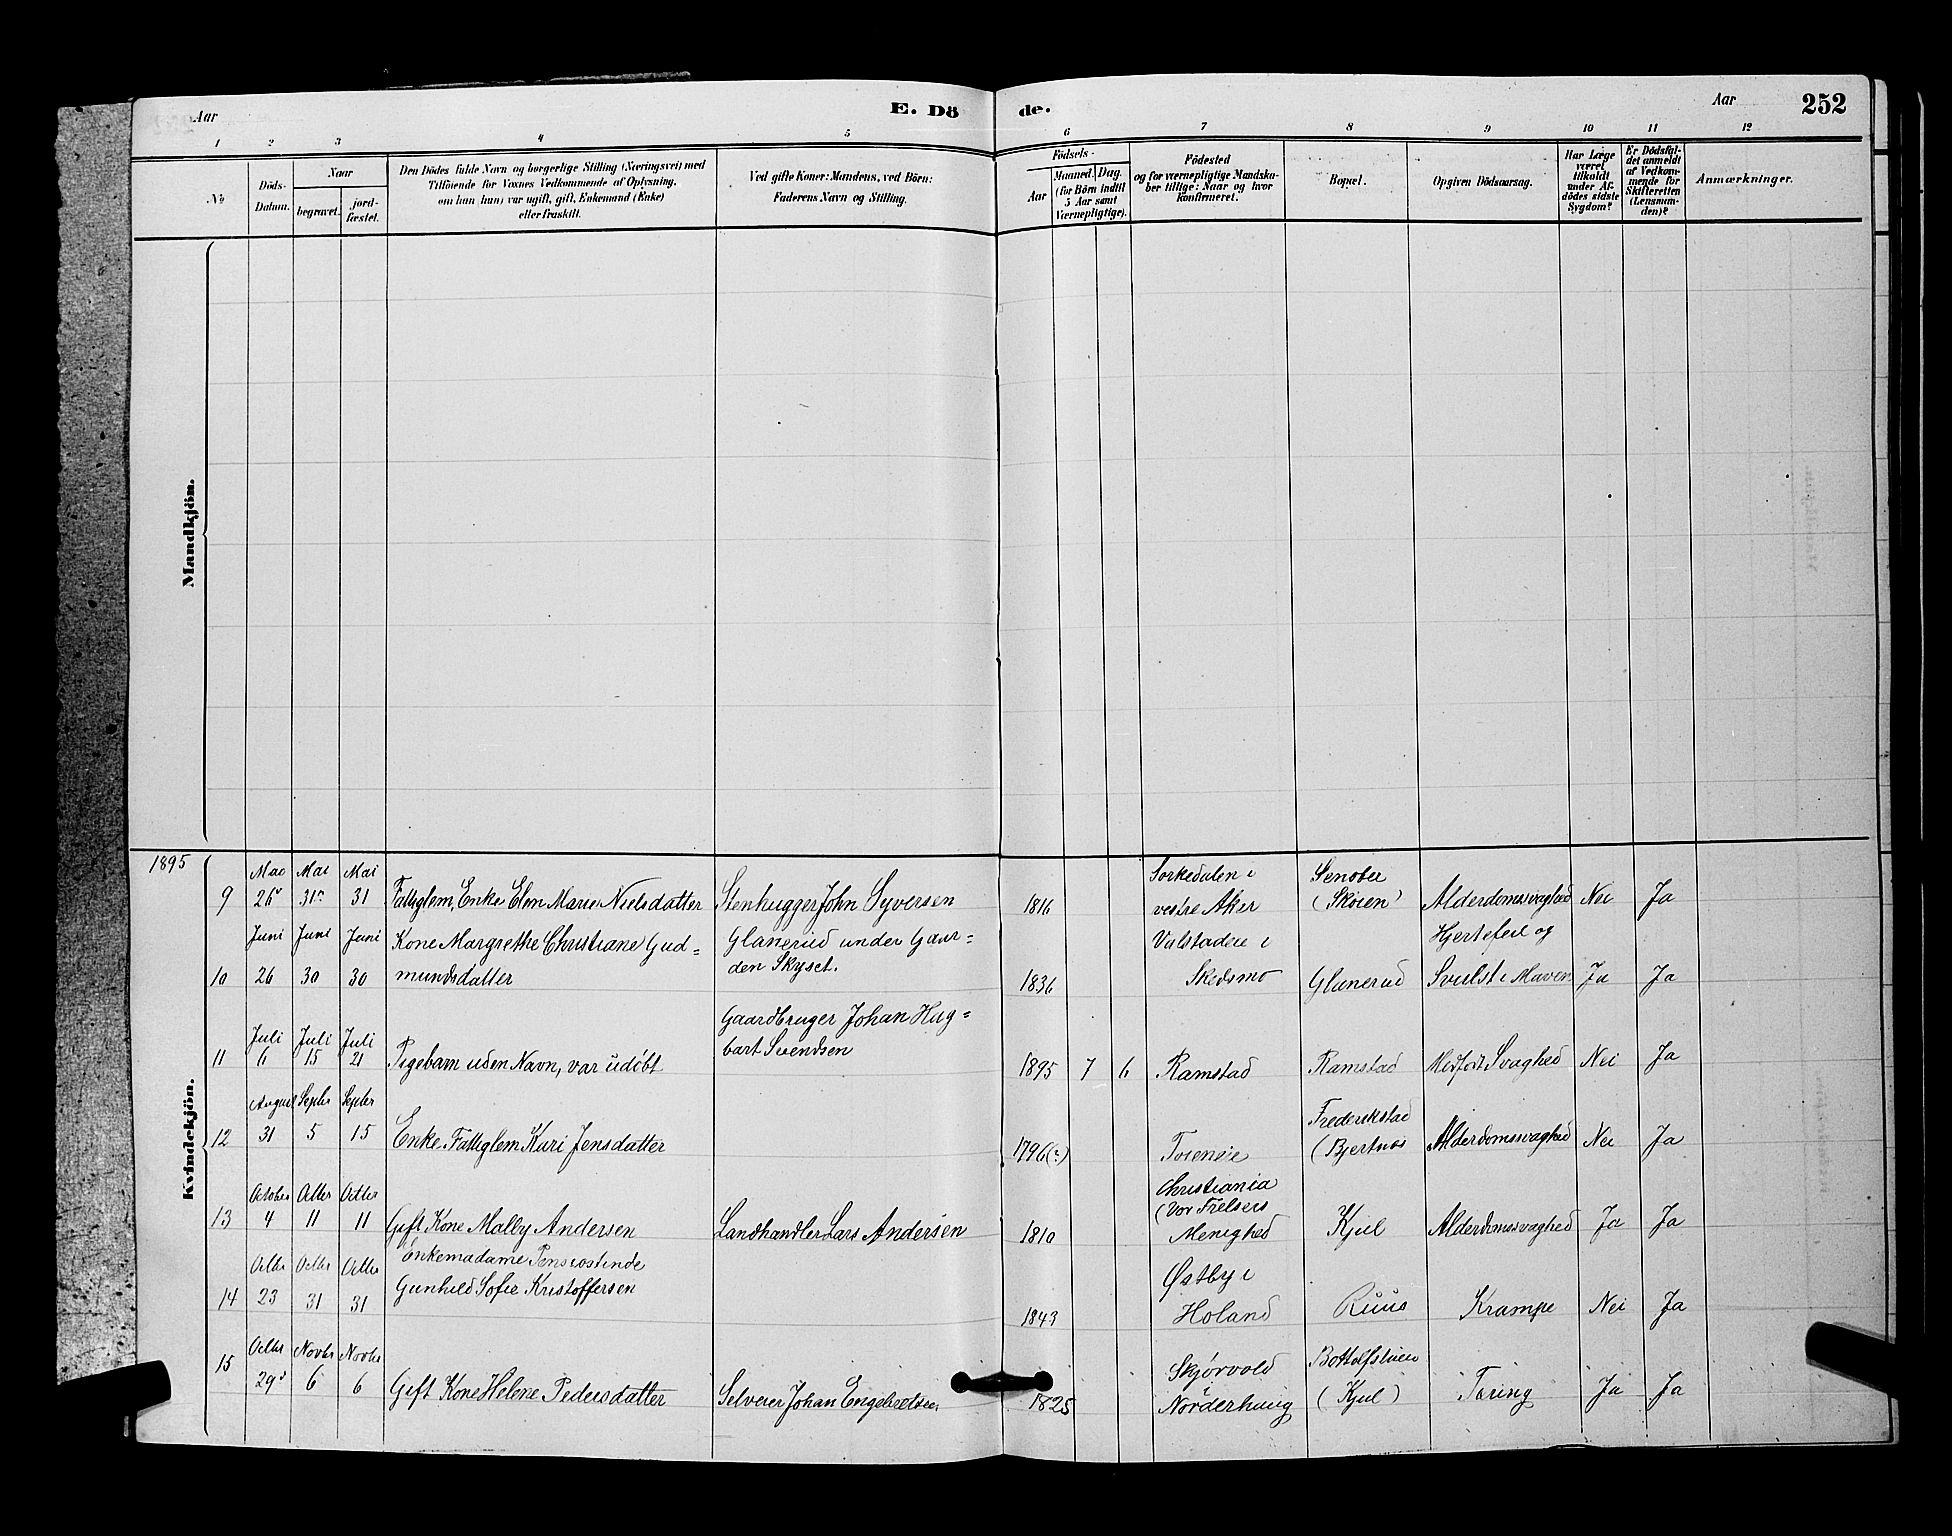 Aar
E. Dö
de.
Aar
252
1 2 3 4 5 6 7 8 9 10 11 12
No
Döds-
Datum.
Naar
begravet.
jord-
fæstet.
Den Dödes fulde Navn og borgerlige Stilling (Næringsvei) med
Tilföiende for Voxnes Vedkommende af Oplysning,
om han (hun) var ugift, gift, Enkemand (Enke)
eller fraskilt.
Ved gifte Koner: Mandens, ved Börn:
Faderens Navn og Stilling.
Födsels-
Aar
Maaned. Dag.
(for Börn indtil
5 Aar samt
Værnepligtige).
Födested
og for værnepligtige Mandska-
ber tillige: Naar og hvor
konfirmeret.
Bopæl.
Opgiven Dödsaarsag.
Har Læge
været
tilkaldt
under Af-
dödes sidste
Sygdom?
Er Dödsfal-
det anmeldt
af Vedkom-
mende for
Skifteretten
(Lensman-
den)?
Anmærkninger.
Mandkjön.
Kvindekjön.
1895
Mai Mai Mai Sorkedalen i
9 26 31 31 Fattiglem, Enke Elen Marie Nielsdatter Stenhugger John Syversen 1816 vestre Aker (Skoien) Alderdomssvaghed Nei Ja
Juni Juni Juni Kone Margrethe Christiane Gud= Glanerud under Gaar= Valstadeie i Hjertefeil og
10 26 30 30 mundsdatter den Skyset. 1836 Skedsmo Glanerud Svulst i Maven Ja Ja
Juli Juli Juli Gaardbruger Johan Hag=
11 6 15 21 Pigebarn uden Navn, var udöbt bart Svendsen 1895 7 6 Ramstad Ramstad Medfödt Svaghed Nei Ja
August Septbr Septbr Frederikstad
12 31 5 15 Enke, Fattiglem Kari Jensdatter 1796(?) Toieneie (Bjertnæs Alderdomssvaghed Nei Ja
October Octbr Octbr Christiania
(Vor Frelsers
13 4 11 11 Gift Kone Mally Andersen Landhandler Lars Andersen 1810 Menighed Kjul Alderdomssvaghed Ja Ja
Octbr Octbr Octbr Enkemadame Østby i
14 23 31 31 Gunhild Sofie Kristoffersen 1843 Holand Ruus Krampe Nei Ja
Octbr Novbr Novbr Skjörvold
15 29 6 6 Gift Kone Helene Pedersdatter Selveier Johan Engebretsen 1825 Nörderhaug (Kjul) Tæring Ja Ja